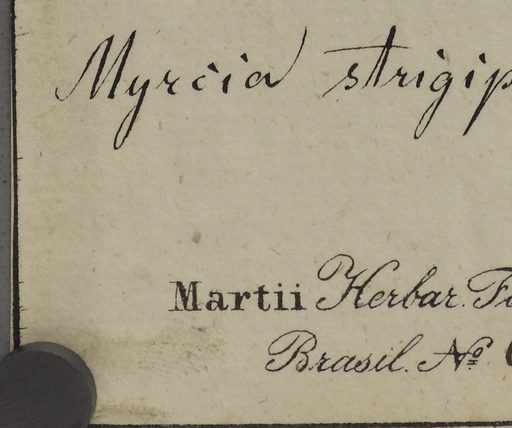 Myrcia strigip
Martii Herbar. F
Brasil. No